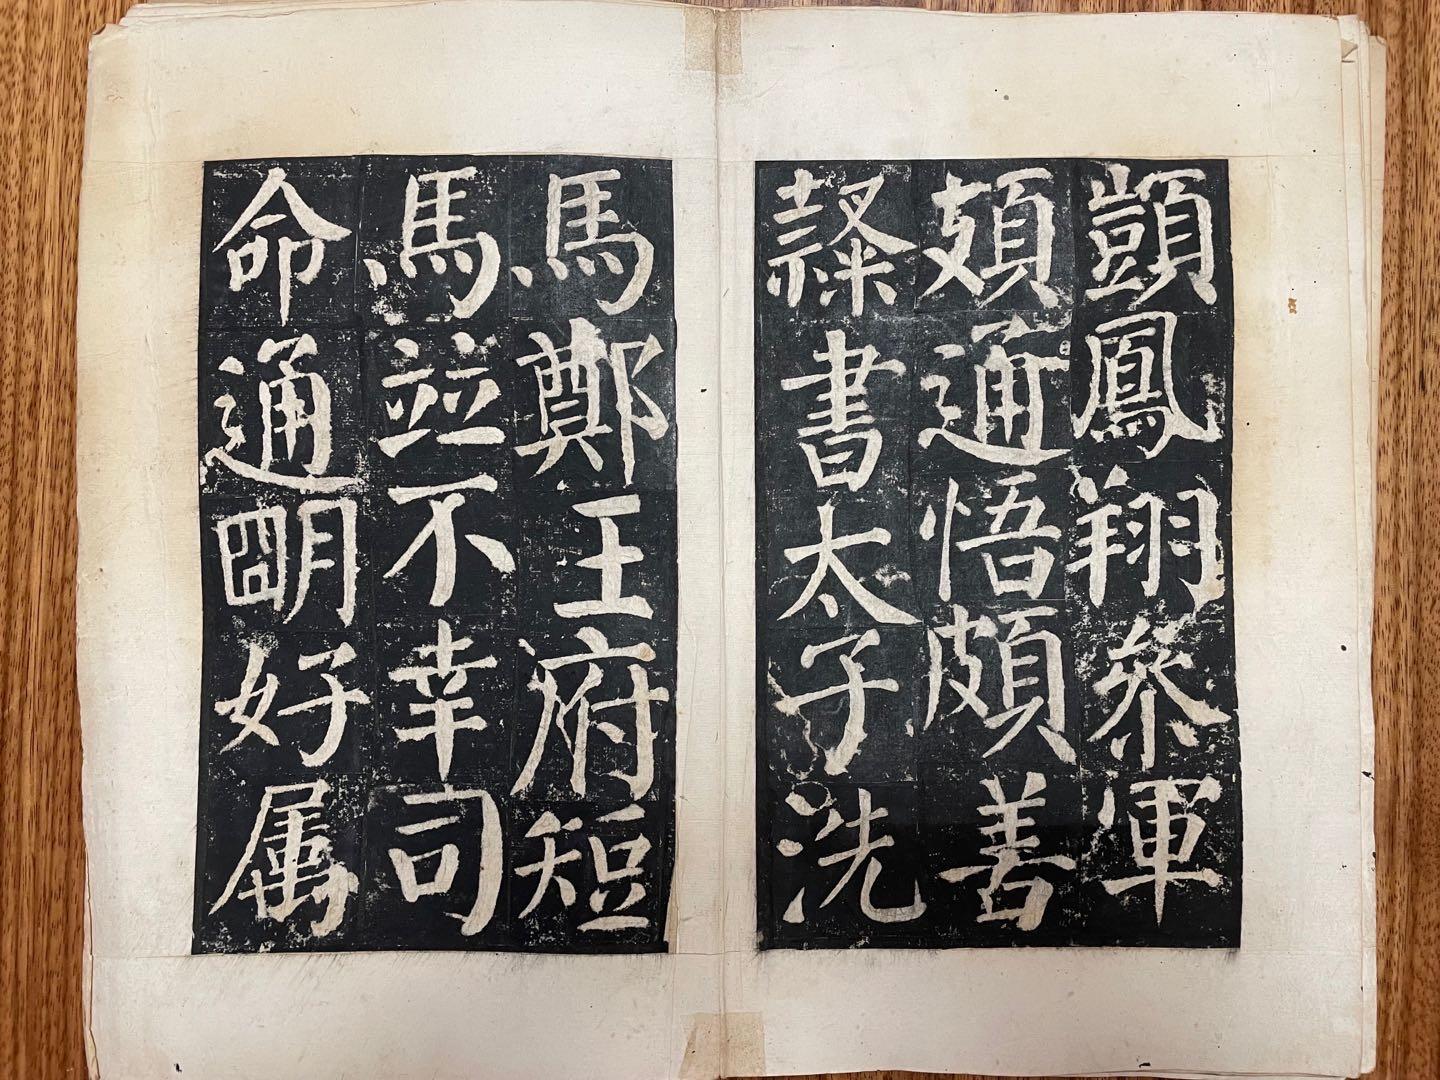 顗鳳翔叅軍
頍通悟頗善
隸書太子洗
馬鄭王府短
馬竝不幸司
命通朙好属